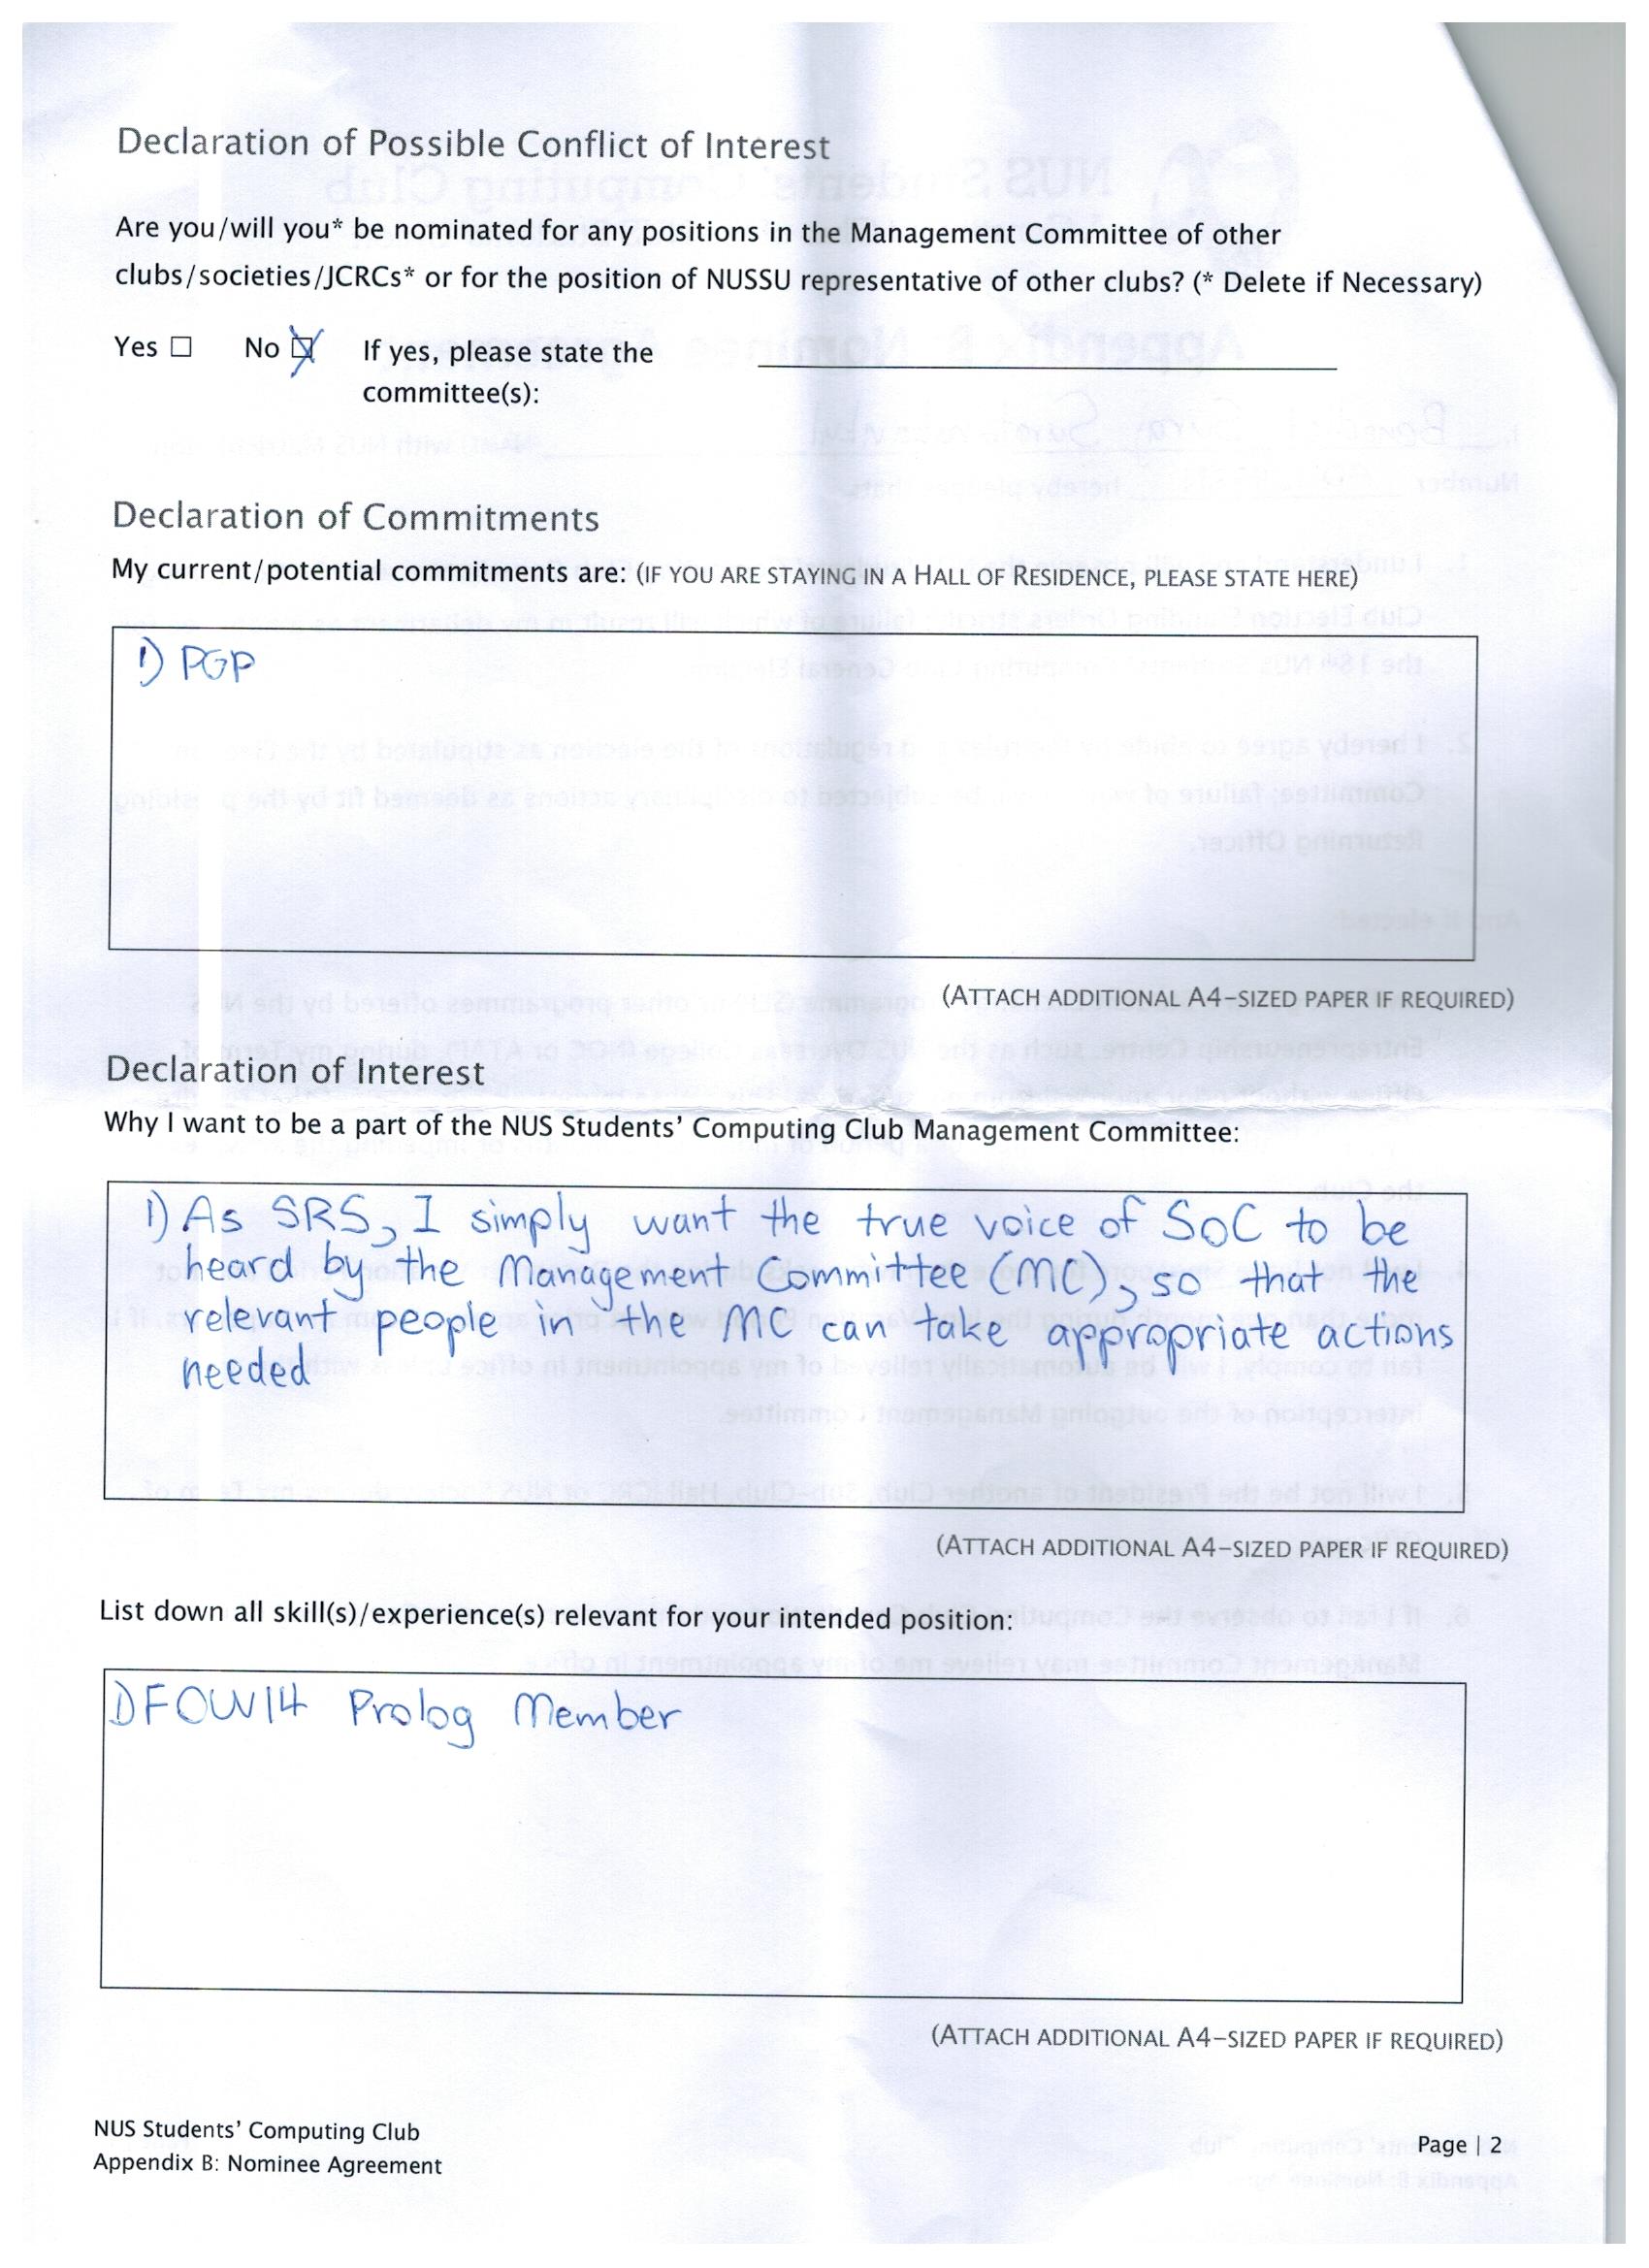 Declaration of Possible Conflict of Interest
Are you/will you* be nominated for any positions in the Management Committee of other
clubs/societies/JCRCs* or for the position of NUSSU representative of other clubs? (* Delete if Necessary)
Yes ☐ No ☒ If yes, please state the
committee(s):
Declaration of Commitments
My current/potential commitments are: (IF YOU ARE STAYING IN A HALL OF RESIDENCE, PLEASE STATE HERE)
1) PGP
(ATTACH ADDITIONAL A4-SIZED PAPER IF REQUIRED)
Declaration of Interest
Why I want to be a part of the NUS Students' Computing Club Management Committee:
1) As SRS, I simply want the true voice of SoC to be
heard by the Management Committee (MC), so that the
relevant people in the MC can take appropriate actions
needed
(ATTACH ADDITIONAL A4-SIZED PAPER IF REQUIRED)
List down all skill(s)/experience(s) relevant for your intended position:
1) FOW14 Prolog Member
(ATTACH ADDITIONAL A4-SIZED PAPER IF REQUIRED)
NUS Students' Computing Club
Appendix B: Nominee Agreement
Page | 2